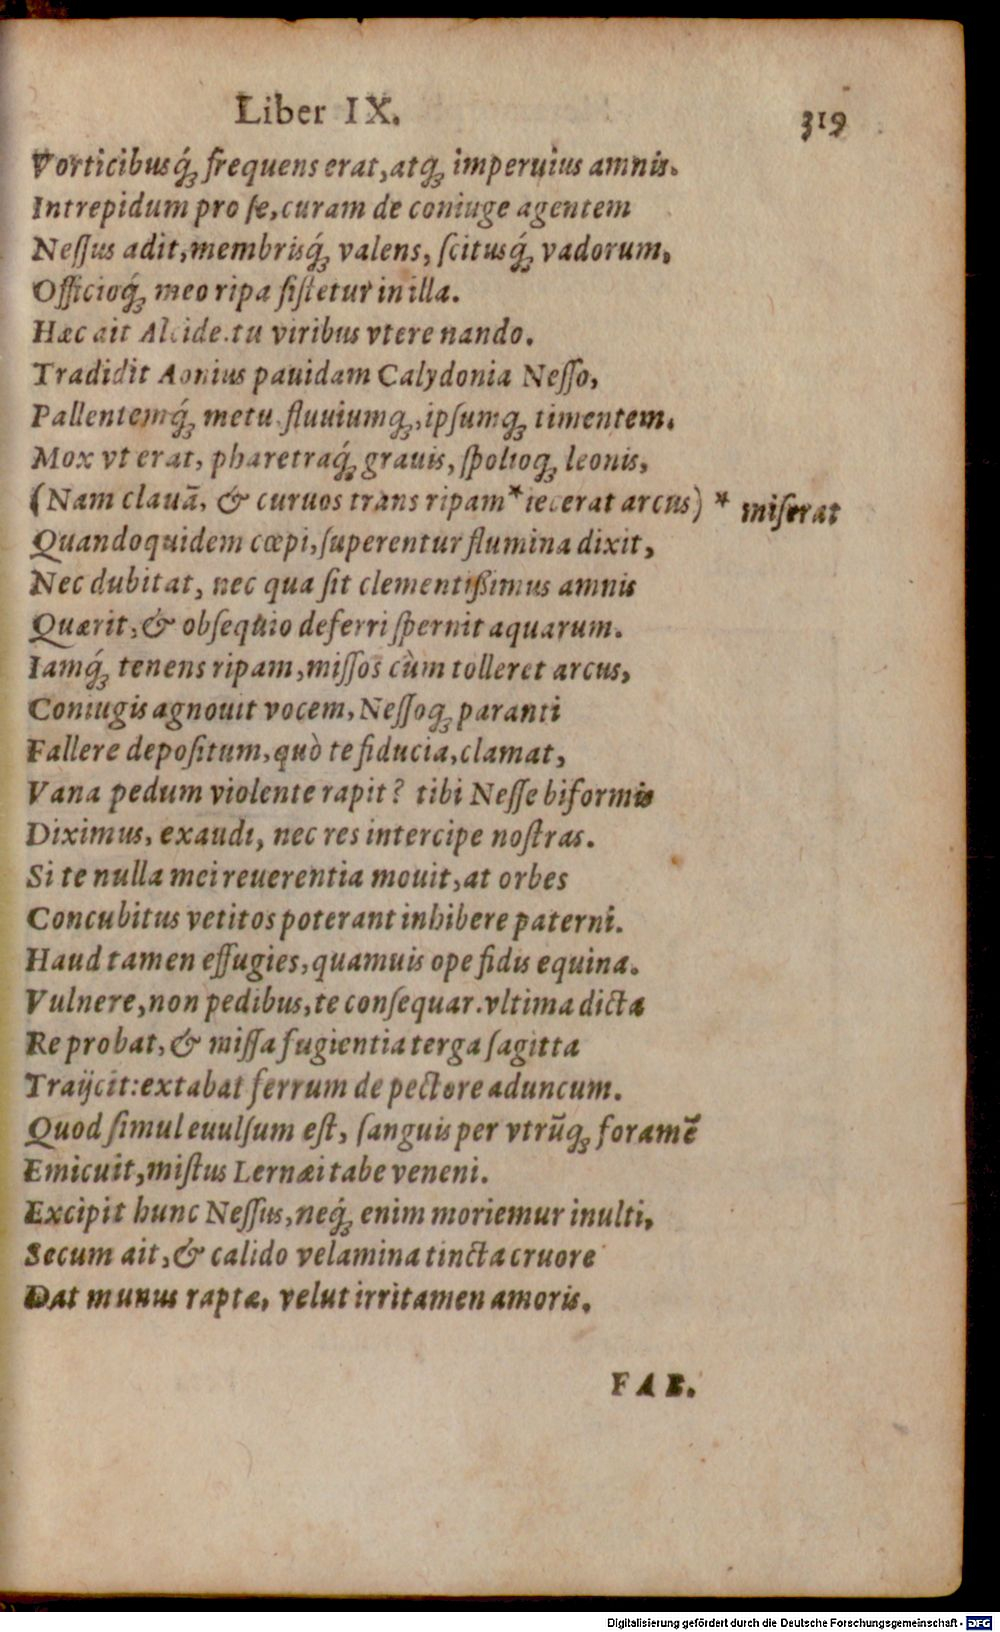 Liber IX. 319
Vorticibusq́ꝫ frequens erat, atqꝫ imperuius amnis.
Intrepidum pro ſe, curam de coniuge agentem
Neſſus adit, membrisq́ꝫ valens, ſcitusq́ꝫ vadorum,
Officioq́ꝫ meo ripa ſiſtetur in illa.
Hæc ait Alcide. tu viribus vtere nando.
Tradidit Aonius pauidam Calydonia Neſſo,
Pallentemq́ꝫ metu, fluuiumqꝫ, ipſumqꝫ timentem.
Mox vt erat, pharetraq́ꝫ grauis, ſpolioqꝫ leonis,
(Nam clauā, & curuos trans ripam * iecerat arcus) * miſerat
Quandoquidem cœpi, ſuperentur flumina dixit,
Nec dubitat, nec qua ſit clementißimus amnis
Quærit, & obſequio deferri ſpernit aquarum.
Iamq́ꝫ tenens ripam, miſſos cùm tolleret arcus,
Coniugis agnouit vocem, Neſſoqꝫ paranti
Fallere depoſitum, quò te fiducia, clamat,
Vana pedum violente rapit? tibi Neſſe biformis
Diximus, exaudi, nec res intercipe noſtras.
Si te nulla mei reuerentia mouit, at orbes
Concubitus vetitos poterant inhibere paterni.
Haud tamen effugies, quamuis ope fidis equina.
Vulnere, non pedibus, te conſequar. vltima dicta
Re probat, & miſſa fugientia terga ſagitta
Traijcit: extabat ferrum de pectore aduncum.
Quod ſimul euulſum eſt, ſanguis per vtrūqꝫ foramē
Emicuit, miſtus Lernæi tabe veneni.
Excipit hunc Neſſus, neq́ꝫ enim moriemur inulti,
Secum ait, & calido velamina tincta cruore
Dat munus raptæ, velut irritamen amoris.
FAB.
Digitalisierung gefördert durch die Deutsche Forschungsgemeinschaft - DFG